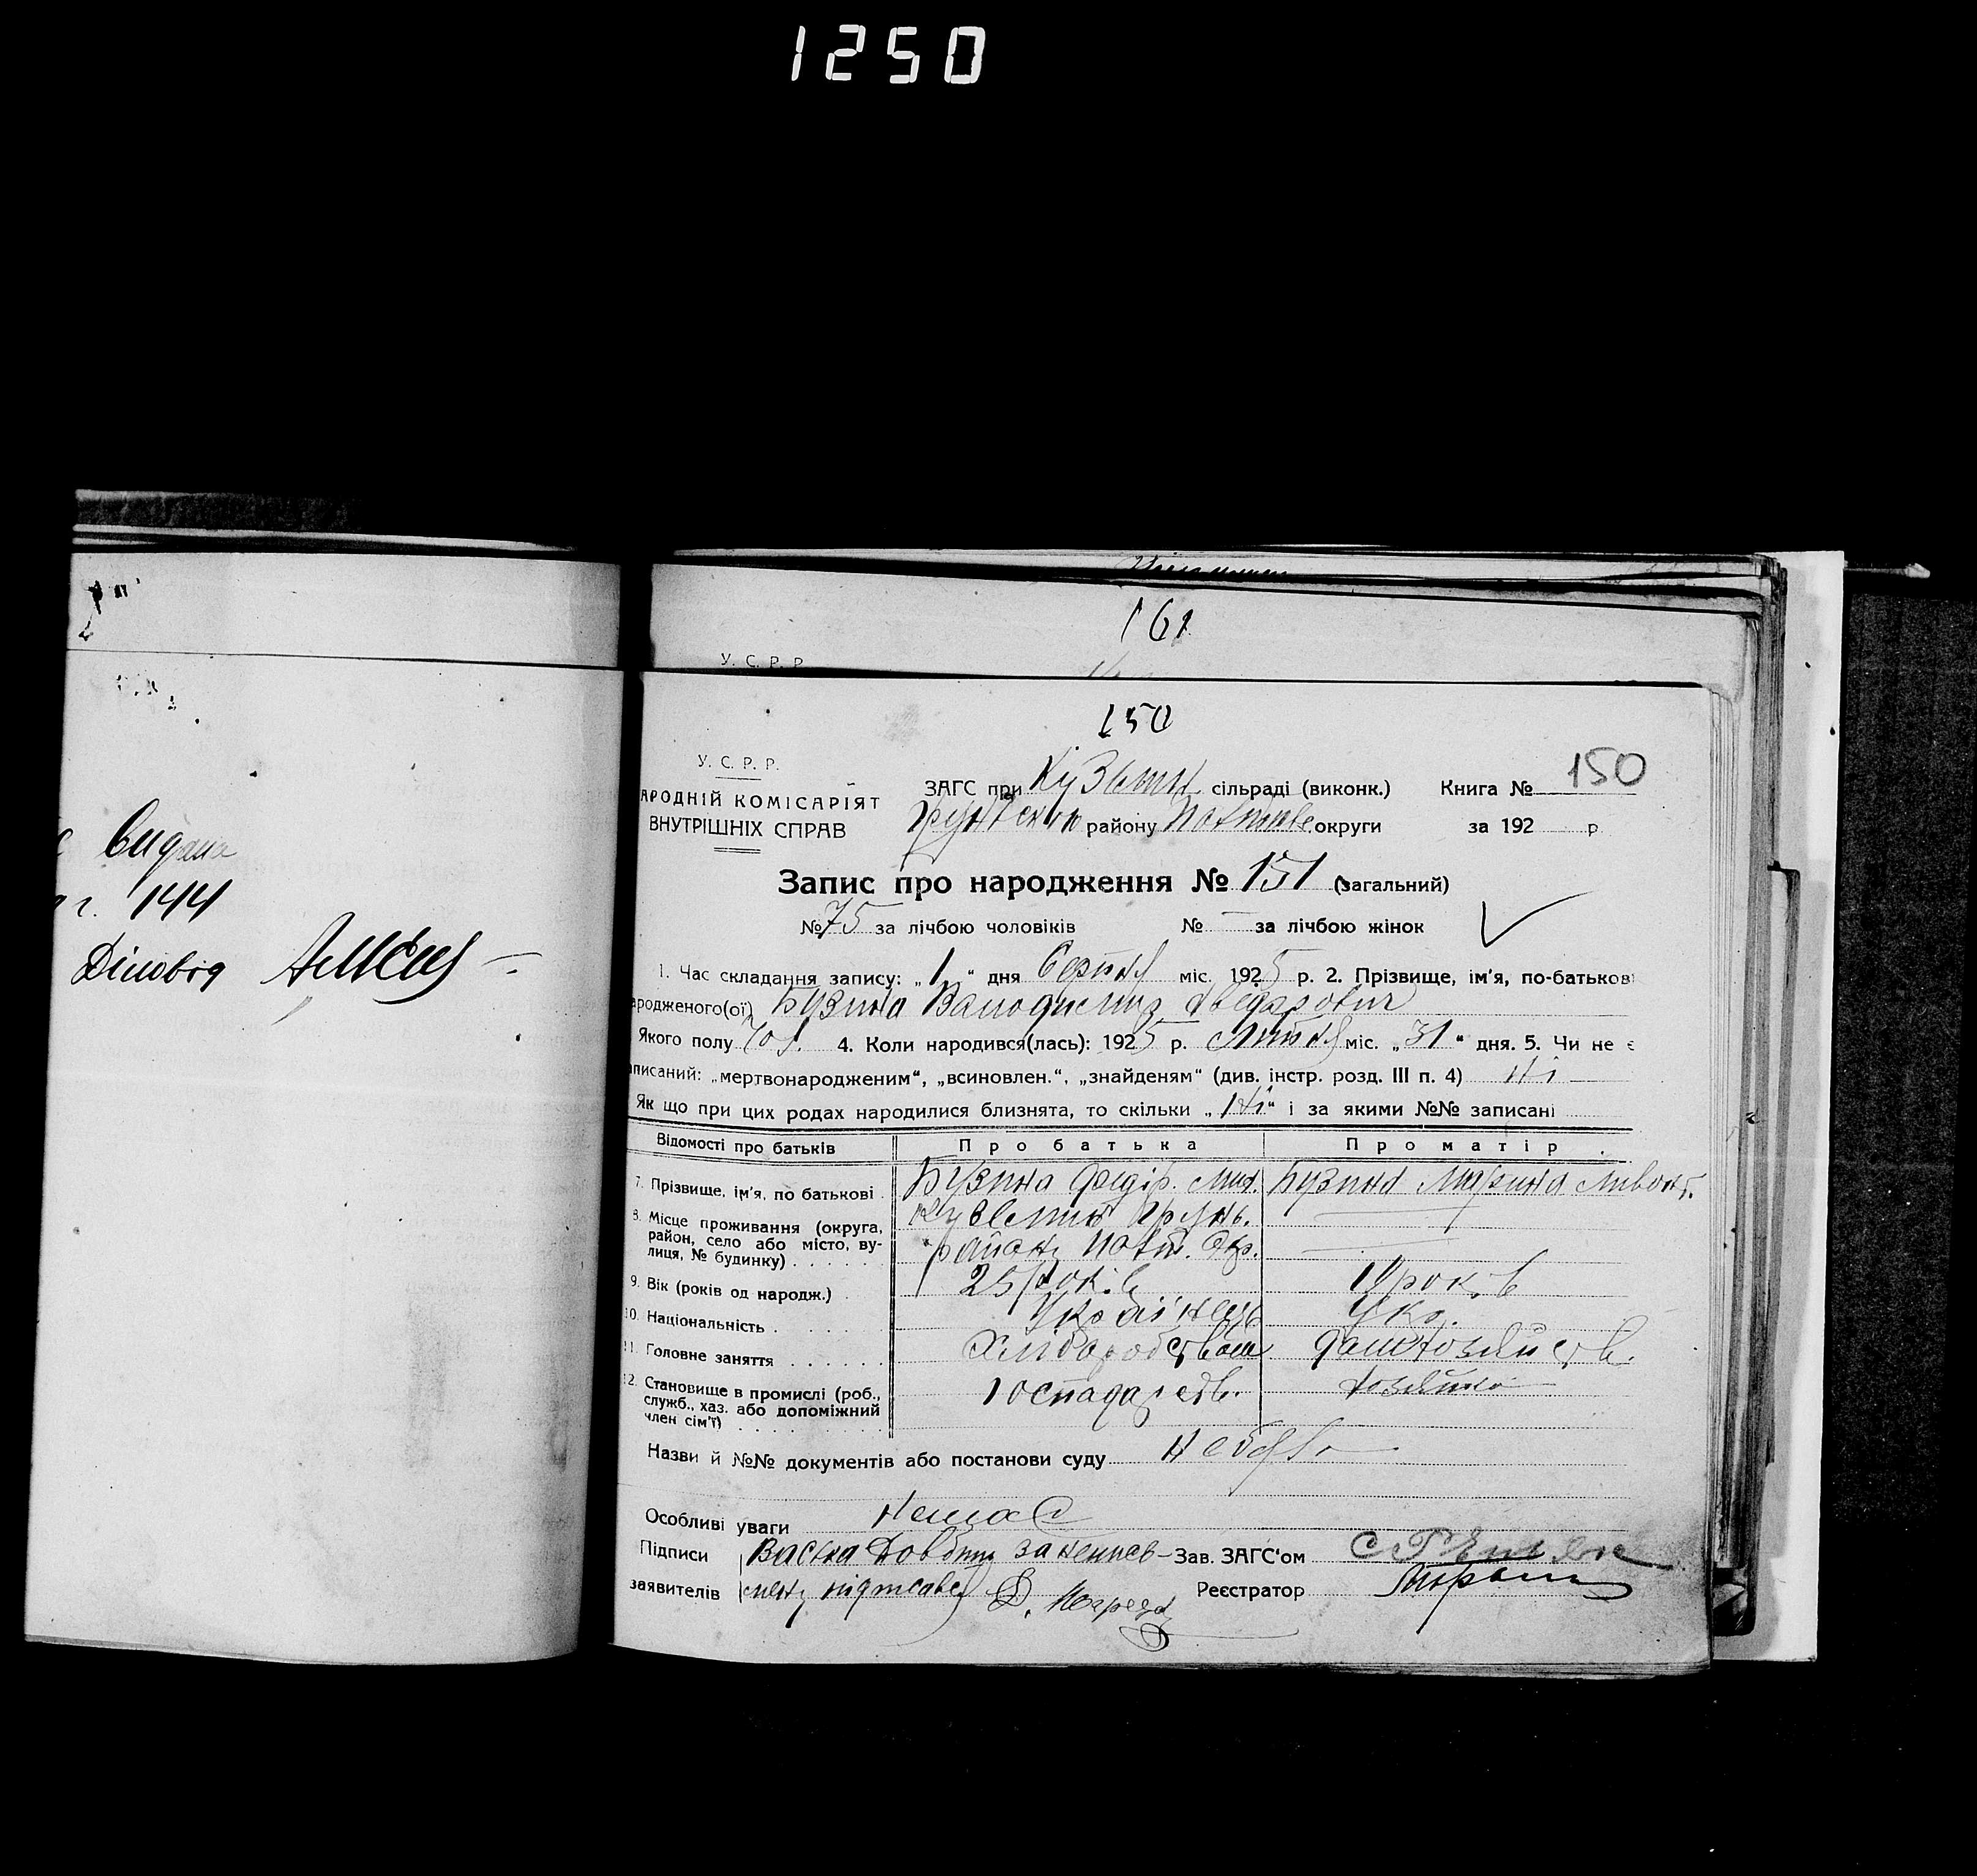 1250
161
У. С. Р. Р.
150
У. С. Р. Р.
АРОДНІЙ КОМІСАРІЯТ
ВНУТРІШНІХ СПРАВ
ЗАГС при Кузьмин сільраді (виконк.) Книга № 150
району округи за 192 р
Запис про народження № 151 (загальний)
№ 75 за лічбою чоловіків № — за лічбою жінок
1. Час складання запису: „1“ дня Серпня міс. 1925 р. 2. Прізвище, ім'я, по-батькові
ародженого(ої) Бузина
Якого полу чол. 4. Коли народився(лась): 1925 р. Липня міс. „31“ дня. 5. Чи не є
аписаний: „мертвонародженим“, „всиновлен.“, „знайденям“ (див. інстр. розд. III п. 4) Ні
Як що при цих родах народилися близнята, то скільки „Ні“ і за якими №№ записані
Відомості про батьків Про батька Про матір
7. Прізвище, ім'я, по батькові Бузина Федір Мих. Бузина Марина
8. Місце проживання (округа, район, село або місто, вулиця, № будинку) Грунь. району Полт. Окр.
9. Вік (років од народж.) 25 рок.в рок.в
10. Національність Українець Укр.
11. Головне заняття Хліборобством
12. Становище в промислі (роб., служб., хаз. або допоміжний член сім'ї) Господарств. хозяйка
Назви й №№ документів або постанови суду Небуло
Особливі уваги Немає
Підписи за неписьЗав. ЗАГС'ом
заявителів менну Реєстратор
Видана
144
Діловод